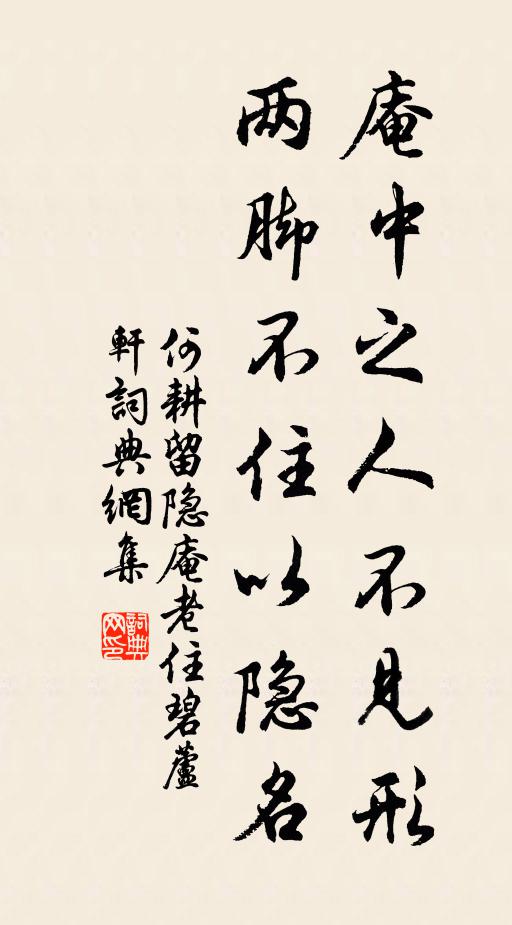 庵中之人不见形
两脚不住以隐名
何耕留隐庵老住碧蘆
軒詞典網集
詞典
网印